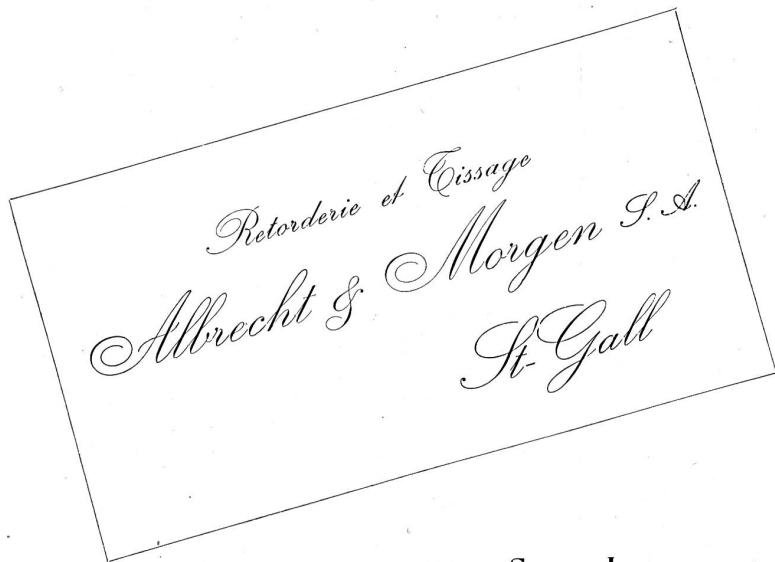 Retorderie et Tissage
Albrecht & Morgen S. A.
St-Gall